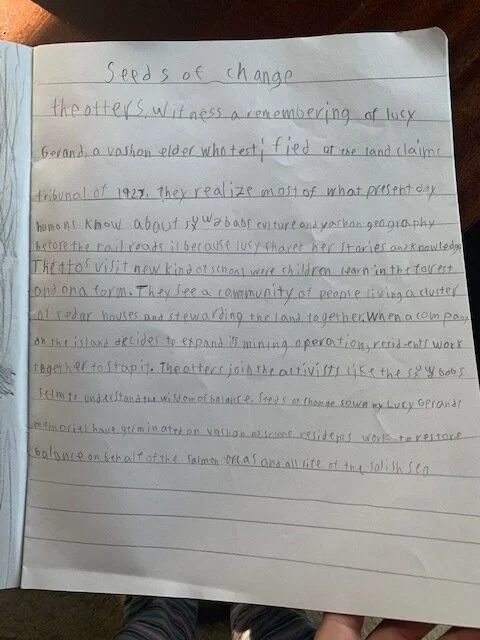 Seeds of change
the otters, witness a remembering of lucy
Gerand, a vashon elder who testified at the land claims
tribunal of 1927. they realize most of what present day
humans know about sxwobabs culture and vashon geography
before the rail roads is because lucy shares her stories and knowledge
The ottos visit new kind of school were children learn in the forest
and on a form. They see a community of people living a cluster
of cedar houses and stewarding the land together. When a company
on the island decides to expand its mining operation, residents work
together to stop it. The otters join the activists like the sxwobabs
seem to understand the wisdom of balance. Seeds of change sown by Lucy Gerands
memories have germinated on vashon as some residents work to restore
balance on behalf of the salmon orcas and all life of the salish sea